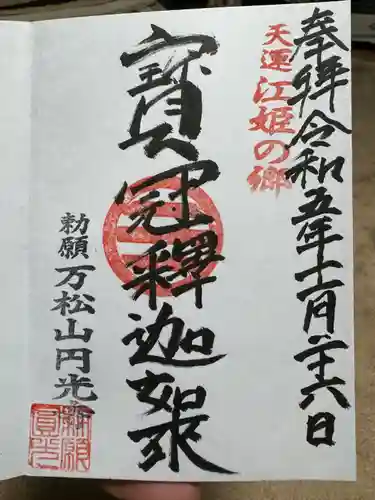 奉拝 令和五年十一月二十六日
天運 江姫の郷
寳冠釋迦如来
勅願 万松山円光寺